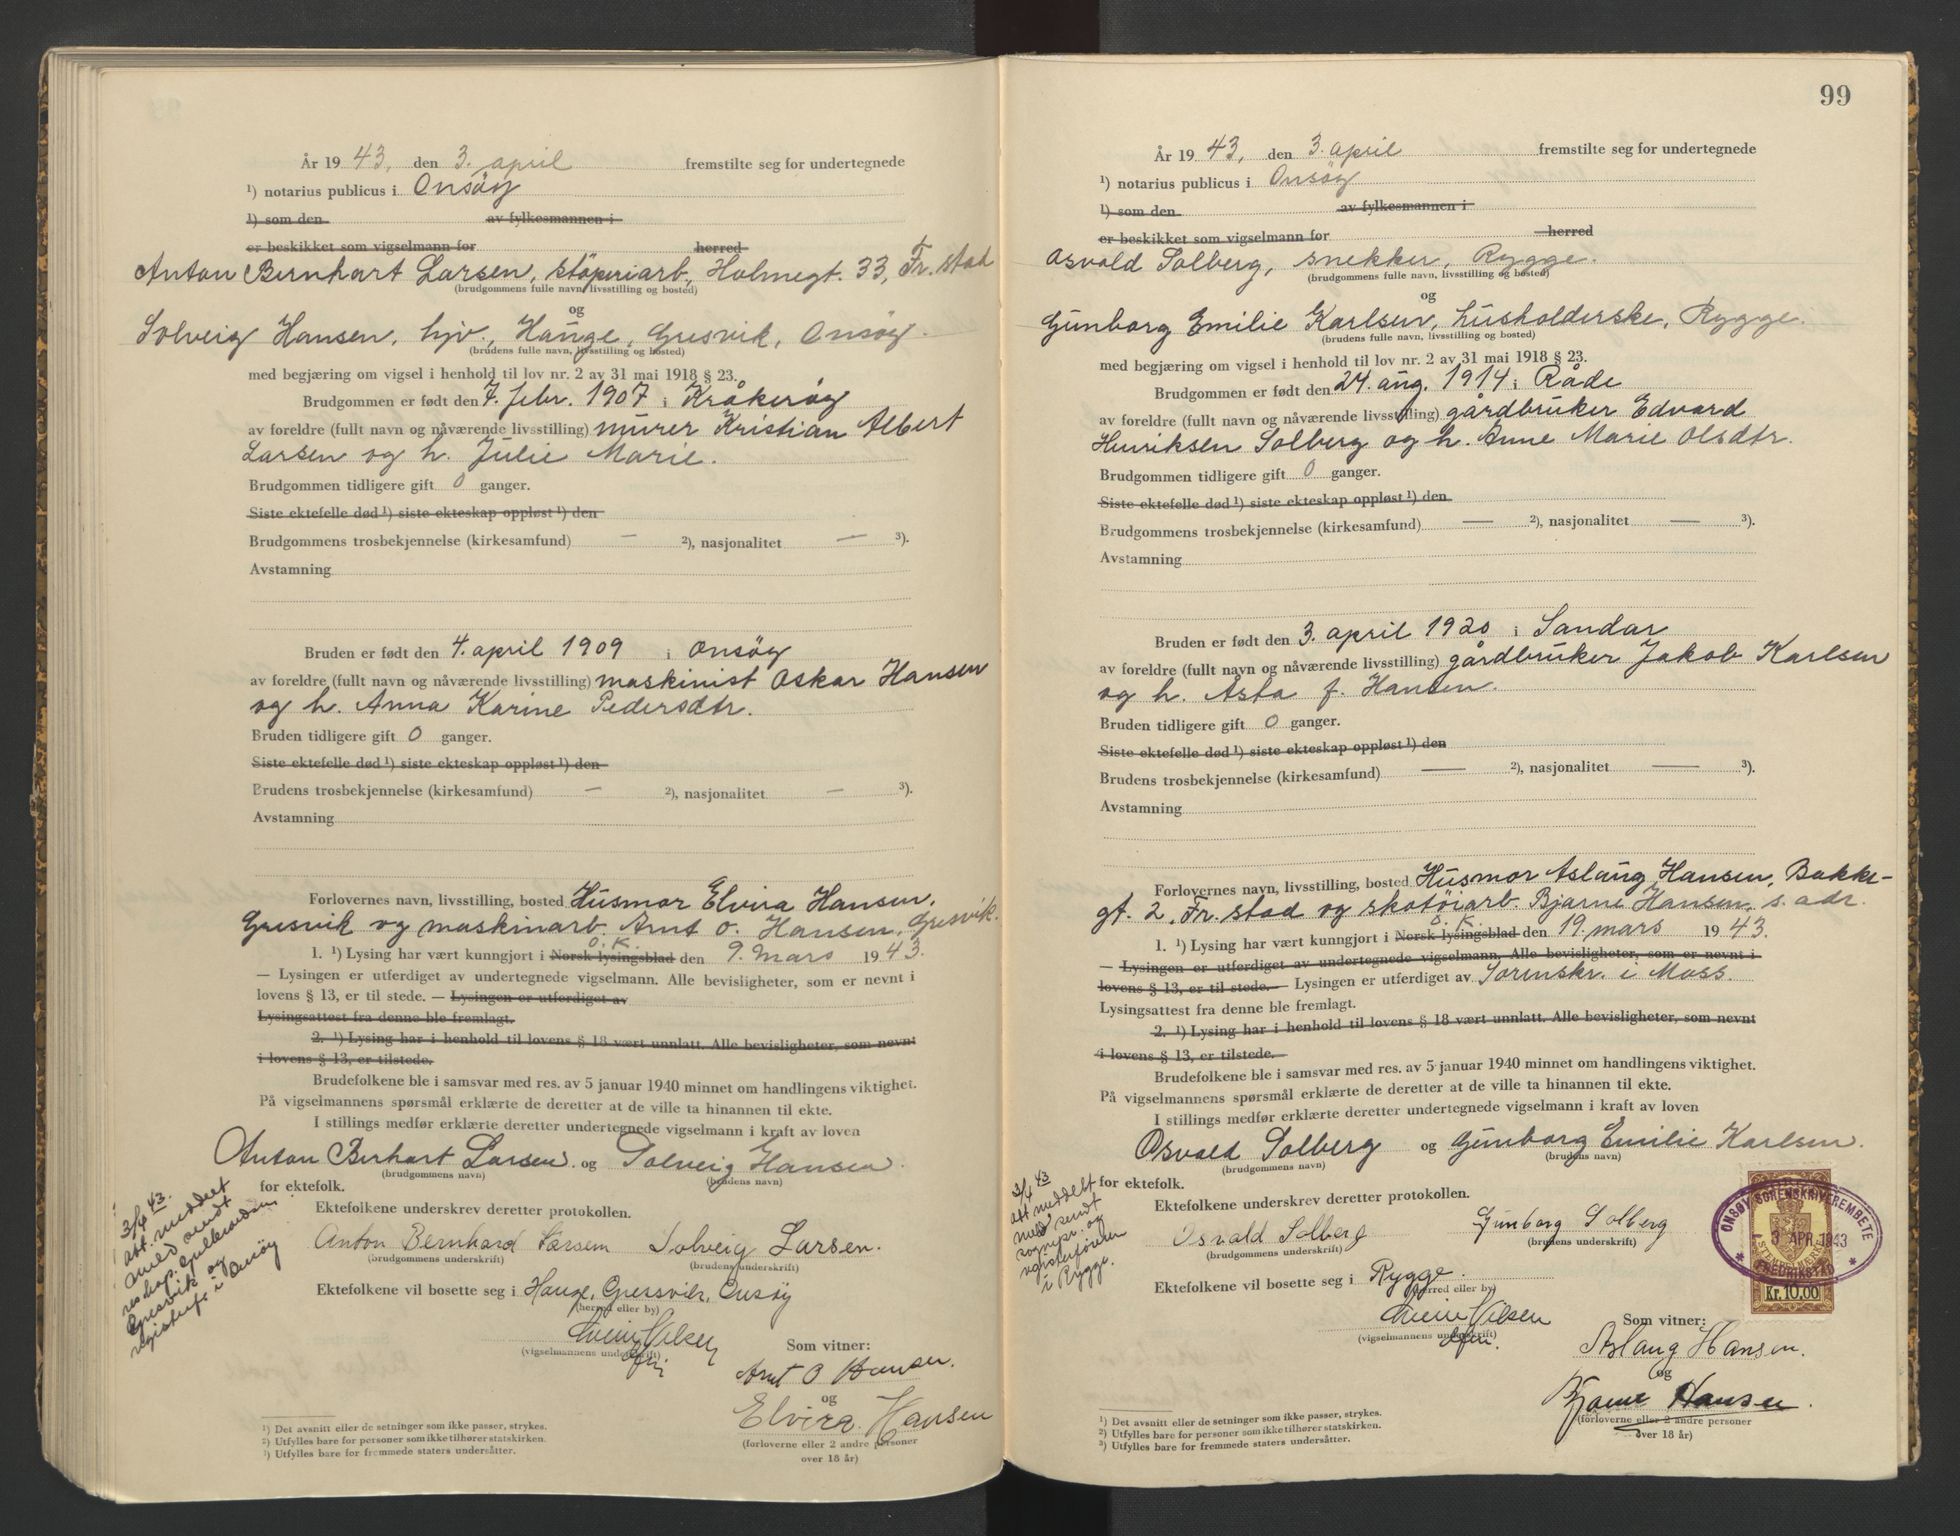 År 19 43, den 3. april fremstilte seg for undertegnede
¹) notarius publicus i Onsøy
¹) som den av fylkesmannen i
er beskikket som vigselmann for herred
Anton Bernhart Larsen, støperiarb, Holmegt. 33, Fr.stad
(brudgommens fulle navn, livsstilling og bosted)
og
Solveig Hansen, hjv., Hauge, Gresvik, Onsøy.
(brudens fulle navn, livsstilling og bosted)
med begjæring om vigsel i henhold til lov nr. 2 av 31 mai 1918 § 23.
Brudgommen er født den 7. febr. 1907 i Kråkerøy
av foreldre (fullt navn og nåværende livsstilling) murer Kristian Albert
Larsen og h. Julie Marie.
Brudgommen tidligere gift 0 ganger.
Siste ektefelle død ¹) siste ekteskap oppløst ¹) den
Brudgommens trosbekjennelse (kirkesamfund) — ²), nasjonalitet — ³).
Avstamning
Bruden er født den 4. april 1909 i Onsøy
av foreldre (fullt navn og nåværende livsstilling) maskinist Oskar Hansen
og h. Anna Karine Pedersdtr.
Bruden tidligere gift 0 ganger.
Siste ektefelle død ¹) siste ekteskap oppløst ¹) den
Brudens trosbekjennelse (kirkesamfund) — ²), nasjonalitet — ³).
Avstamning
Forlovernes navn, livsstilling, bosted Husmor Elvira Hansen,
Gresvik og maskinarb. Arnt O. Hansen, Gresvik.
O. K.
1. ¹) Lysing har vært kunngjort i Norsk lysingsblad den 9. mars 19 43.
— Lysingen er utferdiget av undertegnede vigselmann. Alle bevisligheter, som er nevnt i
lovens § 13, er til stede. — Lysingen er utferdiget av
Lysingsattest fra denne ble fremlagt.
2. ¹) Lysing har i henhold til lovens § 18 vært unnlatt. Alle bevisligheter, som nevnt
i lovens § 13, er tilstede.
Brudefolkene ble i samsvar med res. av 5 januar 1940 minnet om handlingens viktighet.
På vigselmannens spørsmål erklærte de deretter at de ville ta hinannen til ekte.
I stillings medfør erklærte deretter undertegnede vigselmann i kraft av loven
Anton Bernhart Larsen og Solveig Hansen.
(brudgommens navn) (brudens navn)
for ektefolk.
Ektefolkene underskrev deretter protokollen.
Anton Bernhard Larsen Solveig Larsen.
(brudgommens underskrift) (brudens underskrift)
Ektefolkene vil bosette seg i Hauge, Gressvik, Onsøy
(herred eller by)
(vigselmannens underskrift)
Som vitner:
Arnt O Hansen.
og
Elvira Hansen
(forloverne eller 2 andre personer
over 18 år)
3/4 43.
att. meddelt
meld. sendt
res.kap.
Gresvik og
i Onsøy
¹) Det avsnitt eller de setninger som ikke passer, strykes.
²) Utfylles bare for personer som ikke tilhører statskirken.
³) Utfylles bare for fremmede staters undersåtter.
99
År 19 43, den 3. april fremstilte seg for undertegnede
¹) notarius publicus i Onsøy
¹) som den av fylkesmannen i
er beskikket som vigselmann for herred
Osvald Solberg, snekker, Rygge.
(brudgommens fulle navn, livsstilling og bosted)
og
Gunborg Emilie Karlsen, husholderske, Rygge.
(brudens fulle navn, livsstilling og bosted)
med begjæring om vigsel i henhold til lov nr. 2 av 31 mai 1918 § 23.
Brudgommen er født den 24. aug. 1914 i Råde
av foreldre (fullt navn og nåværende livsstilling) gårdbruker Edvard
Henriksen Solberg og h. Anne Marie Olsdtr.
Brudgommen tidligere gift 0 ganger.
Siste ektefelle død ¹) siste ekteskap oppløst ¹) den
Brudgommens trosbekjennelse (kirkesamfund) — ²), nasjonalitet — ³).
Avstamning
Bruden er født den 3. april 1920 i Sandar
av foreldre (fullt navn og nåværende livsstilling) gårdbruker Jakob Karlsen
og h. Asta f. Hansen.
Bruden tidligere gift 0 ganger.
Siste ektefelle død ¹) siste ekteskap oppløst ¹) den
Brudens trosbekjennelse (kirkesamfund) — ²), nasjonalitet — ³).
Avstamning
Forlovernes navn, livsstilling, bosted Husmor Aslaug Hansen, Bakke-
gt. 2, Fr.stad og skotøiarb. Bjarne Hansen, s. adr.
O. K.
1. ¹) Lysing har vært kunngjort i Norsk lysingsblad den 19. mars 19 43.
— Lysingen er utferdiget av undertegnede vigselmann. Alle bevisligheter, som er nevnt i
lovens § 13, er til stede. — Lysingen er utferdiget av Sorenskr. i Moss.
Lysingsattest fra denne ble fremlagt.
2. ¹) Lysing har i henhold til lovens § 18 vært unnlatt. Alle bevisligheter, som nevnt
i lovens § 13, er tilstede.
Brudefolkene ble i samsvar med res. av 5 januar 1940 minnet om handlingens viktighet.
På vigselmannens spørsmål erklærte de deretter at de ville ta hinannen til ekte.
I stillings medfør erklærte deretter undertegnede vigselmann i kraft av loven
Osvald Solberg og Gunborg Emilie Karlsen.
(brudgommens navn) (brudens navn)
for ektefolk.
Ektefolkene underskrev deretter protokollen.
Osvald Solberg Gunborg Solberg
(brudgommens underskrift) (brudens underskrift)
Ektefolkene vil bosette seg i Rygge.
(herred eller by)
(vigselmannens underskrift)
Som vitner:
Aslaug Hansen.
og
Bjarne Hansen.
(forloverne eller 2 andre personer
over 18 år)
3/4 43
att meddelt
meld sendt
sognepr. og
i Rygge.
ONSØY SORENSKRIVEREMBETE
3 APR. 1943
FREDRIKSTAD
STEMPELMERKE
Kr. 10.00
¹) Det avsnitt eller de setninger som ikke passer, strykes.
²) Utfylles bare for personer som ikke tilhører statskirken.
³) Utfylles bare for fremmede staters undersåtter.